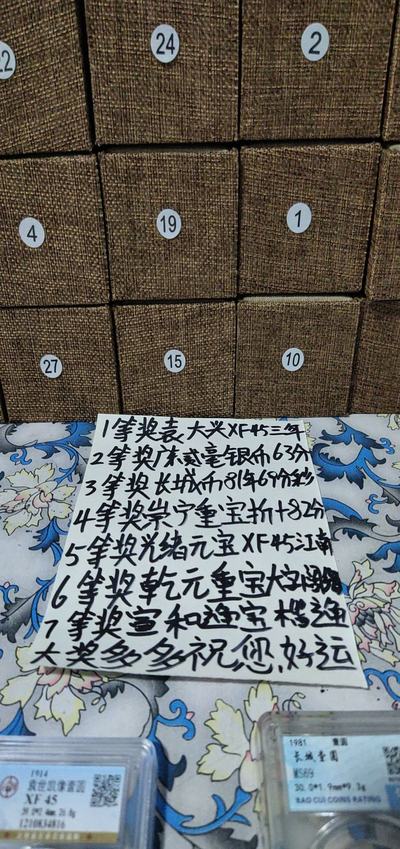 22
24
2
4
19
1
27
15
10
1等奖袁大头XF45三年
2等奖广东贰毫银币63分
3等奖长城币81年69分彩
4等奖崇宁重宝折十82分
5等奖光绪元宝XF45江南
6等奖乾元重宝大字
7等奖宣和通宝
大奖多多祝您好运
1914
袁世凯像壹圆
XF 45
1210834816
1981 壹圆
长城壹圆
MS69
30.0*1.9mm*9.3g
BAO CUI COINS RATING